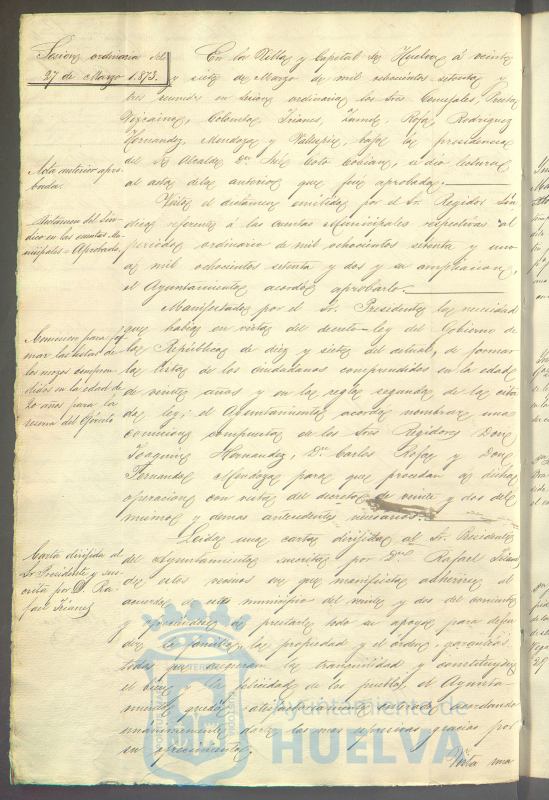 Sesion ordinaria del
27 de Marzo 1.873.
En la Villa y Capital de Huelva á veinte
y siete de Marzo de mil ochocientos setenta y
tres reunidos en sesion ordinaria los Sres Concejales,
Vizcaino, Colombo, Trianes, Rofa, Rodriguez
Hernandez, Mendoza y bajo la presidencia
del Sr Alcalde Dn Coto Cobian, se dio lectura
al acta de la anterior que fue aprobada.
Acta anterior apro-
bada.
Vista el dictamen emitido por el Sr. Regidor Sin-
dico referente á las cuentas Municipales respectivas al
periodo ordinario de mil ochocientos setenta y uno
a mil ochocientos setenta y dos y su ampliacion,
el Ayuntamiento acordó aprobarlo.
Dictamen del Sin-
dico en las cuentas Mu-
nicipales = Aprobado
Manifestado por el Sr. Presidente la necesidad
que habia en virtud del decreto-ley del Gobierno de
la República de diez y siete del actual, de formar
la lista de los ciudadanos comprendidos en la edad
de veinte años y en la regla segunda de la cita-
da ley; el Ayuntamiento acordó nombrar una
comision compuesta de los Sres Regidores Don
Joaquin Hernandez, Dn Carlos Rofa y Don
Fernando Mendoza para que procedan a dicha
operacion con vista del decreto de veinte y dos del
mismo y demas antecedentes necesarios.
Comision para for-
mar las listas de
los mozos compren-
didos en la edad de
20 años para la
reserva del Ejército
Leida una carta dirijida al Sr. Presidente
del Ayuntamiento suscrita por Dn Rafael Trianes
de esta vecino en que manifiesta adherirse al
acuerdo de este municipio del veinte y dos del corriente
y ofreciendose á prestarle todo su apoyo para defen-
der la familia, la propiedad y el órden, garantias
todas que aseguran la tranquilidad y constituyen
el bien y la felicidad de los pueblos, el Ayunta-
miento quedó acordando
unanimemente darle las mas espresivas gracias por
su ofrecimiento.
Carta dirijida al
Sr Presidente y sus-
crita por D. Ra-
fael Trianes
Vista una
Ayuntamiento de
HUELVA